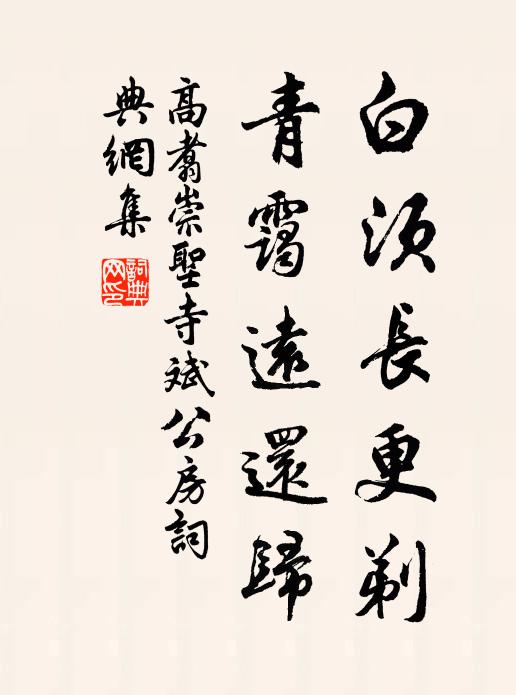 白须長更剃
青靄遠還歸
高翥崇聖寺斌公房詞
典網集
詞典
网印